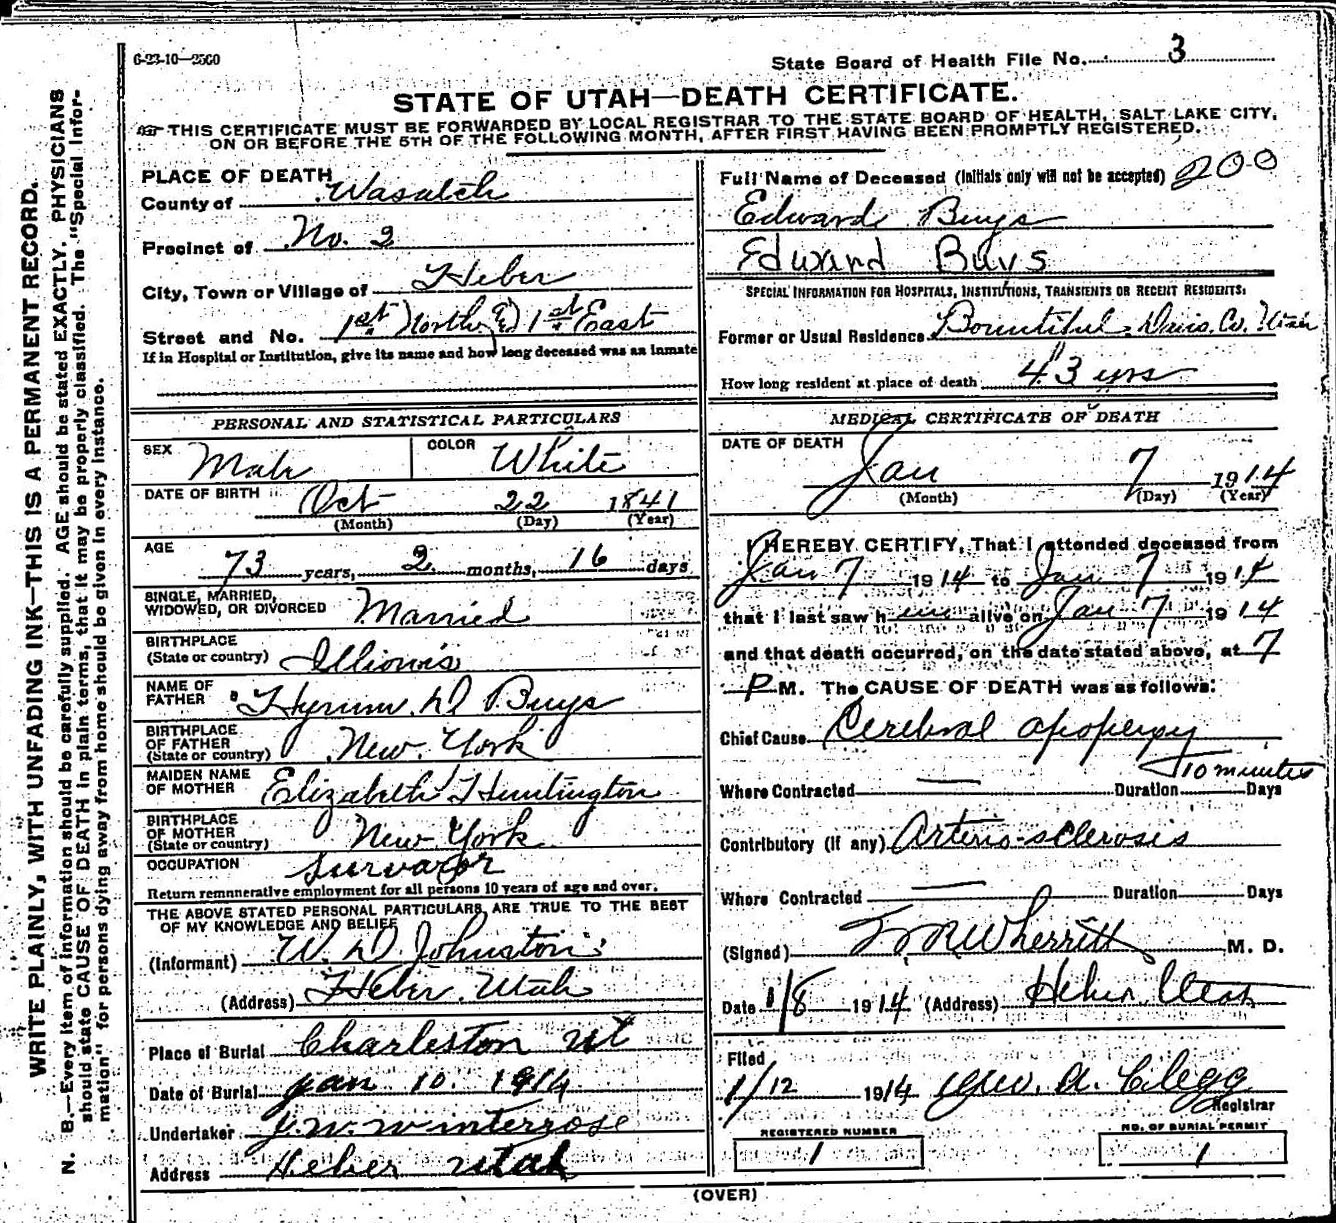 6-23-10—2500
State Board of Health File No. 3
STATE OF UTAH—DEATH CERTIFICATE.
THIS CERTIFICATE MUST BE FORWARDED BY LOCAL REGISTRAR TO THE STATE BOARD OF HEALTH, SALT LAKE CITY,
ON OR BEFORE THE 5TH OF THE FOLLOWING MONTH, AFTER FIRST HAVING BEEN PROMPTLY REGISTERED.
WRITE PLAINLY, WITH UNFADING INK—THIS IS A PERMANENT RECORD.
N. B.—Every item of information should be carefully supplied. AGE should be stated EXACTLY. PHYSICIANS
should state CAUSE OF DEATH in plain terms, that it may be properly classified. The "Special Infor-
mation" for persons dying away from home should be given in every instance.
PLACE OF DEATH
County of Wasatch
Precinct of No. 2
City, Town or Village of Heber
Street and No. 1st North & 1st East
If in Hospital or Institution, give its name and how long deceased was an inmate
PERSONAL AND STATISTICAL PARTICULARS
SEX Male COLOR White
DATE OF BIRTH Oct 22 1841
(Month) (Day) (Year)
AGE 73 years, 2 months, 16 days
SINGLE, MARRIED,
WIDOWED, OR DIVORCED Married
BIRTHPLACE
(State or country) Illionis
NAME OF
FATHER Hyrum D Buys
BIRTHPLACE
OF FATHER
(State or country) New York
MAIDEN NAME
OF MOTHER Elizabeth Huntington
BIRTHPLACE
OF MOTHER
(State or country) New York
OCCUPATION Survayor
Return remnnerative employment for all persons 10 years of age and over.
THE ABOVE STATED PERSONAL PARTICULARS ARE TRUE TO THE BEST
OF MY KNOWLEDGE AND BELIEF
(Informant) W. D Johnston
(Address) Heber, Utah
Place of Burial Charleston ut
Date of Burial Jan 10. 1914
Undertaker J. W. Winterrose
Address Heber Utah
Full Name of Deceased (Initials only will not be accepted) 200
Edward Buys
Edward Buys
SPECIAL INFORMATION FOR HOSPITALS, INSTITUTIONS, TRANSIENTS OR RECENT RESIDENTS:
Former or Usual Residence Bountiful, Davis, Co. Utah
How long resident at place of death 43 yrs
MEDICAL CERTIFICATE OF DEATH
DATE OF DEATH
Jan 7 1914
(Month) (Day) (Year)
I HEREBY CERTIFY, That I attended deceased from
Jan 7 1914 to Jan 7 1914
that I last saw him alive on Jan 7 1914
and that death occurred, on the date stated above, at 7
P M. The CAUSE OF DEATH was as follows:
Chief Cause Cerebral apoplexy
10 minutes
Where Contracted Duration Days
Contributory (if any) Arterio-sclerosis
Where Contracted Duration Days
(Signed) Wherritt M. D.
Date 1/8 1914 (Address) Heber Utah
Filed
1/12 1914 Geo. A. Clegg
Registrar
REGISTERED NUMBER NO. OF BURIAL PERMIT
1 1
(OVER)